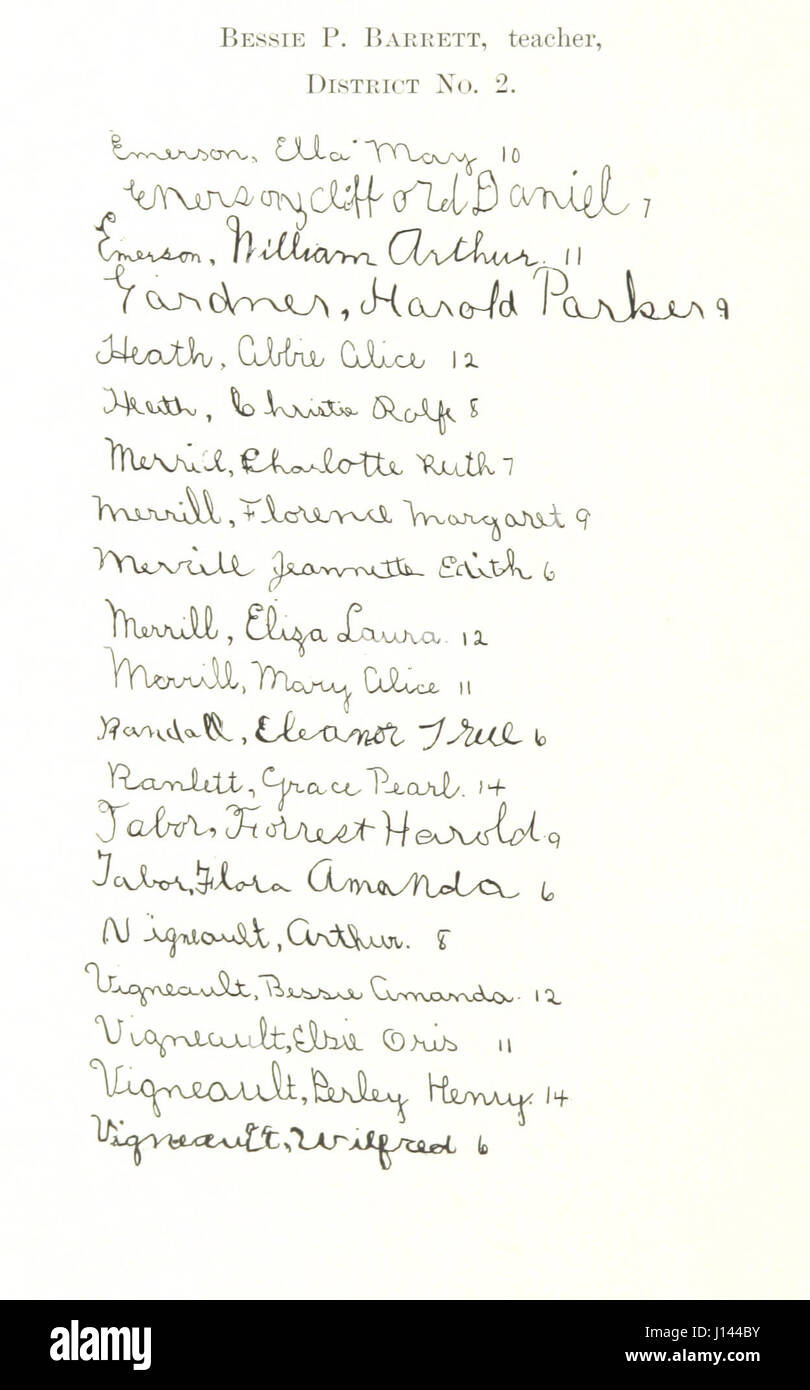 BESSIE P. BARRETT, teacher,
DISTRICT No. 2.
Emerson, Ella May 10
Emerson, Clifford Daniel 7
Emerson, William Arthur. 11
Gardner, Harold Parker 9
Heath, Abbie Alice 12
Heath, Christie Rolfe 8
Merrill, Charlotte Ruth 7
Merrill, Florence Margaret 9
Merrill Jeannette Edith 6
Merrill, Eliza Laura 12
Merrill, Mary Alice 11
Randall, Eleanor True 6
Ranlett, Grace Pearl. 14
Tabor, Forrest Harold 9
Tabor, Flora Amanda 6
Vigneault, Arthur. 8
Vigneault, Bessie Amanda. 12
Vigneault, Elsie Oris 11
Vigneault, Perley Henry. 14
Vigneault, Wilfred 6
alamy
Image ID: J144BY
www.alamy.com